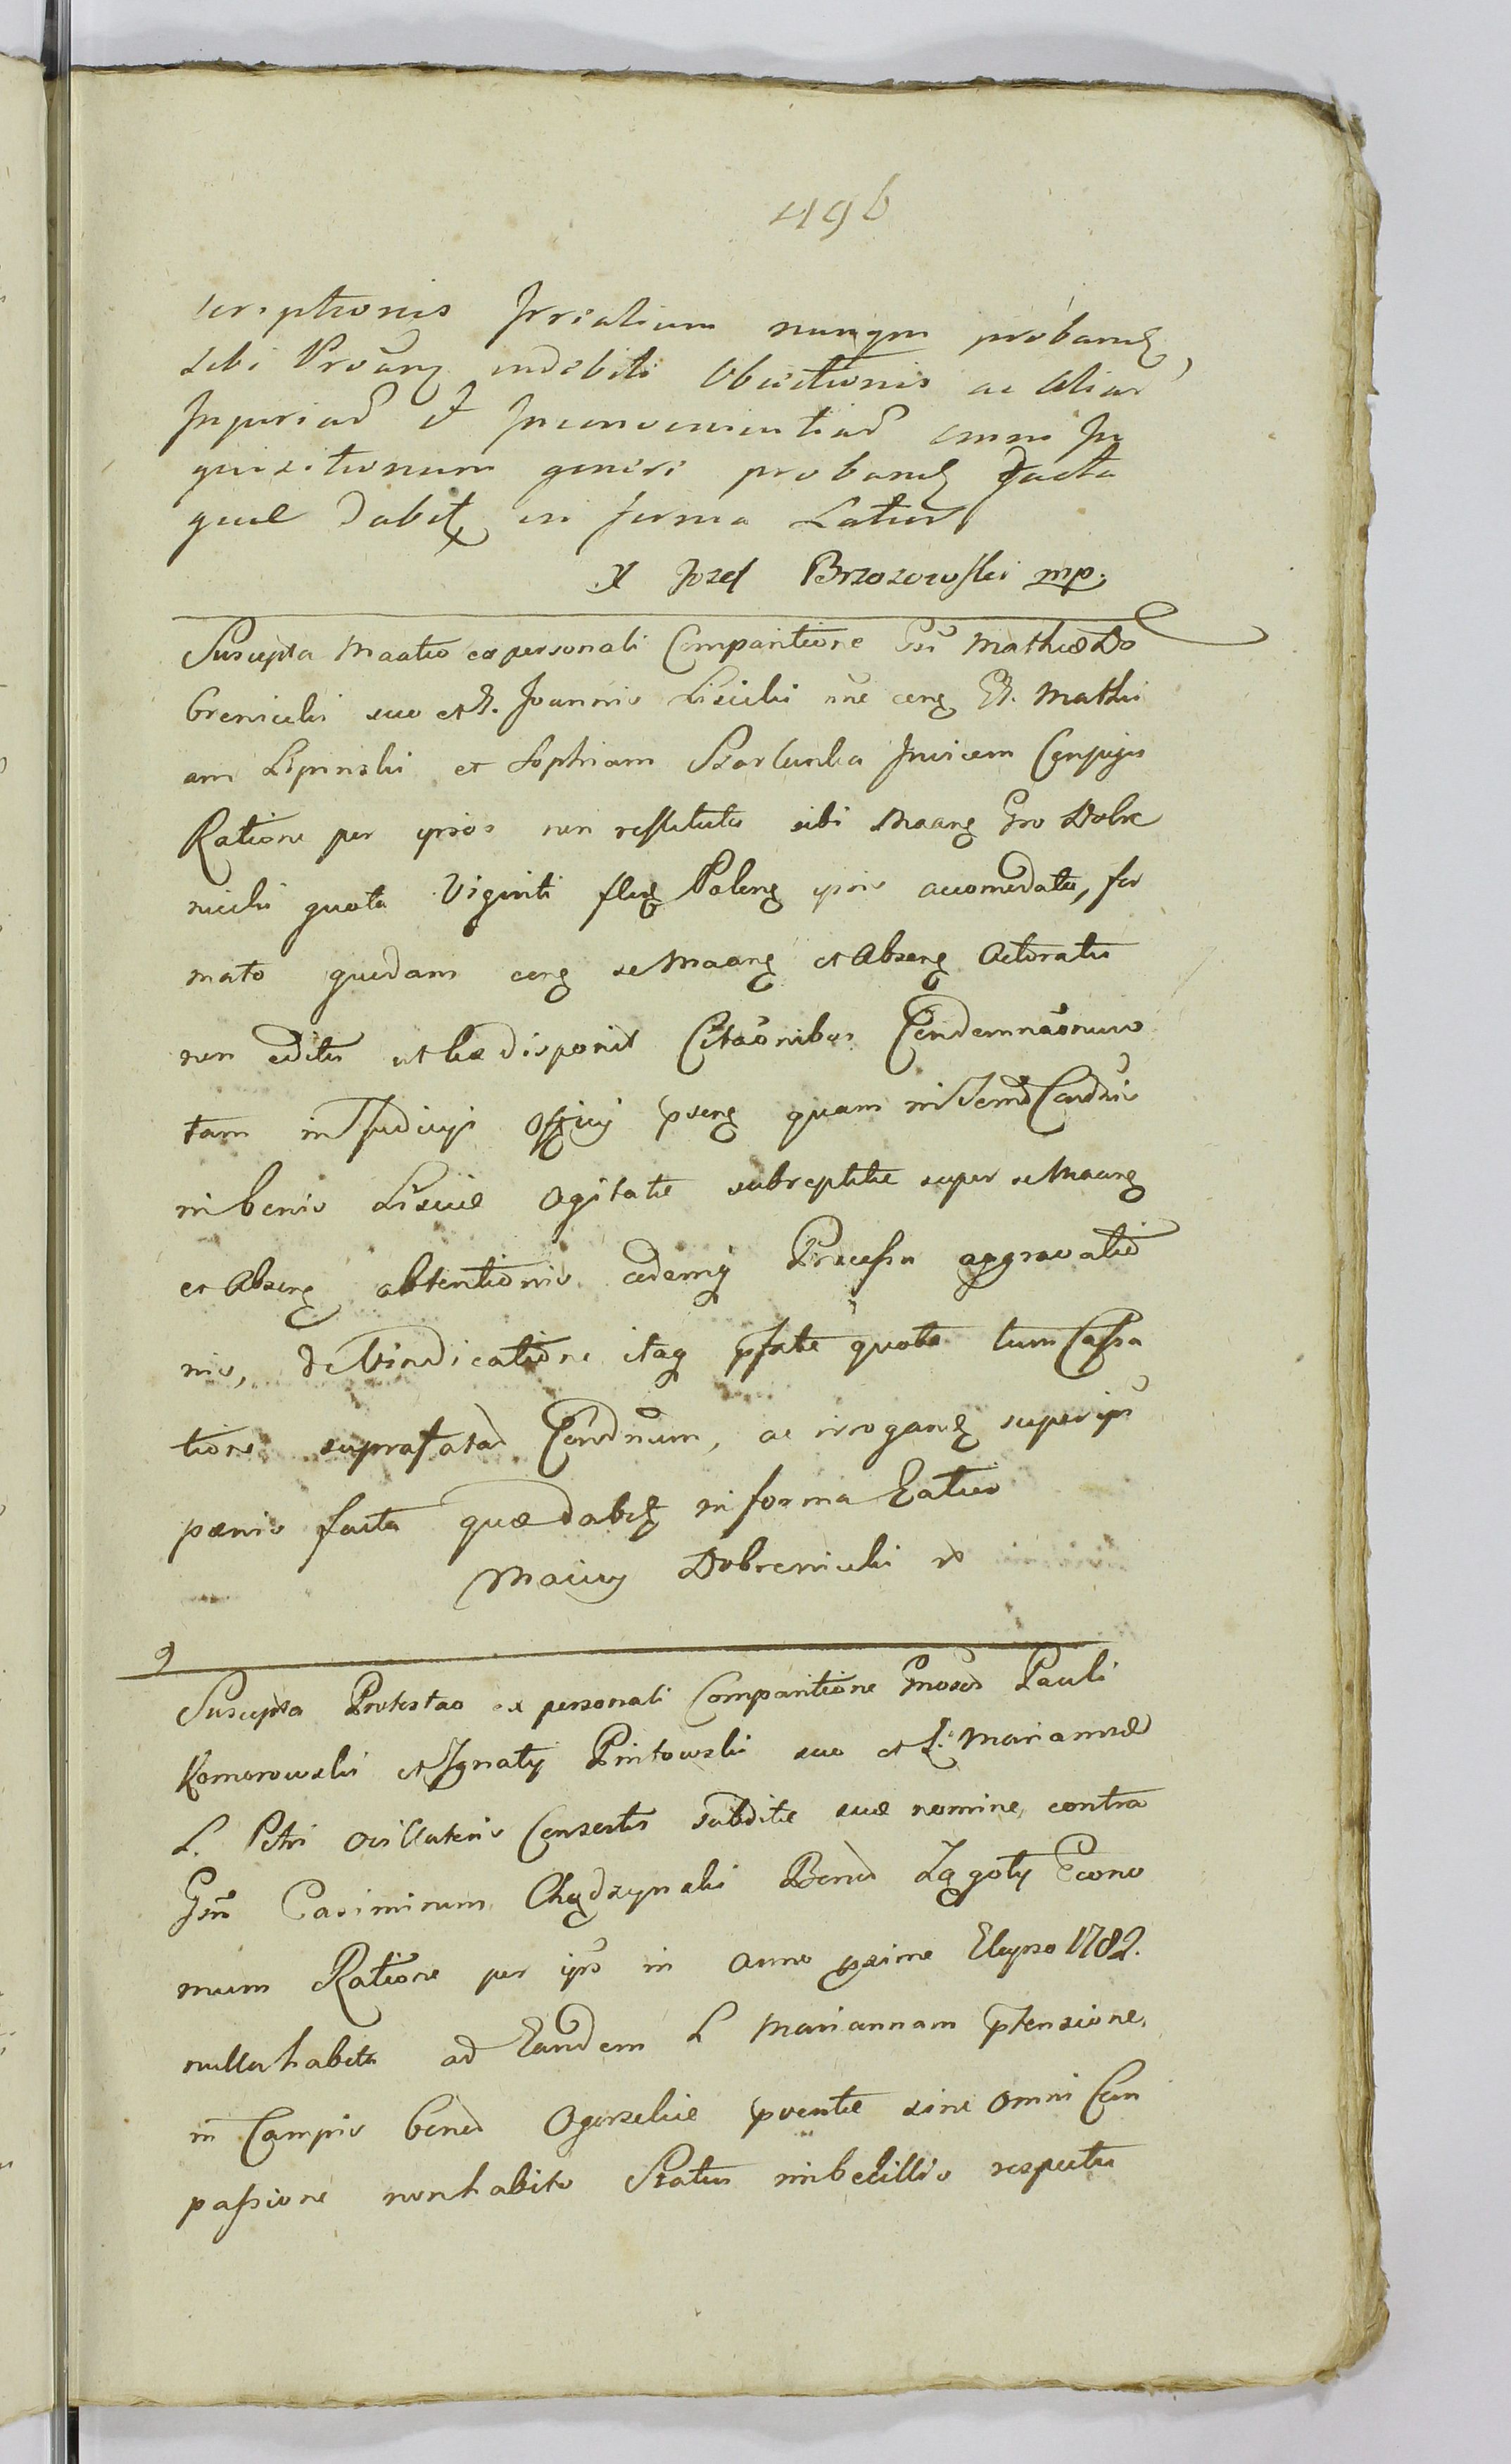 496
scriptionis nunqm proband
sibi indebiti Obiectionis ac Aliar
Injuriar et Inconvenientiar omni In
quisitionum generi proband facta
quae dabit in forma Latiori
X Jozef Brzozowski mp.
Suscepta Maatio ex personali Comparitione Gsi Mathiae Do
breniecki suo et G. Joannis Lisicki nne cong G. Mathi
am Lipinski et Sophiam Invicem Conjuges
Ratione per ipsos non restituta sibi Maang Gso Dobre
niecki quota Viginti fleng Poleng ipsis accomodata, for
mato quodam cong se Maang et Abseng Actoratu
non editis ut lex disponit Citaonibus Condemnaonum
tam in Judicijs Officij pseng quam in Cardzin
in bonis Lisice Agitatis subreptitie super se Maang
et Abseng obtentionis eodemq Processu aggravatio
nis, de Vindicatione itaq pfate quota tum Cassa
tione suprafatar Condnum, ac irrogand super ips
paenis facta quae dabit in forma Latiori
Maciey Dobreniecki
9
Suscepta Protestao ex personali Comparitione Gnosor Pauli
Komorowski et Ignatij Pintowski suo et L. Mariannae
L. Petri Consortis subditae suae nomine, contra
Gsm Casimirum Chądzynski Bonor Zągoty Econo
mum Ratione per ips in Anno pxime Elapso 1782.
nulla habita ad Eandem L Mariannam ptensione,
in Campis bonor pventae sine omni Com
passione non habito Status imbecillis respectu